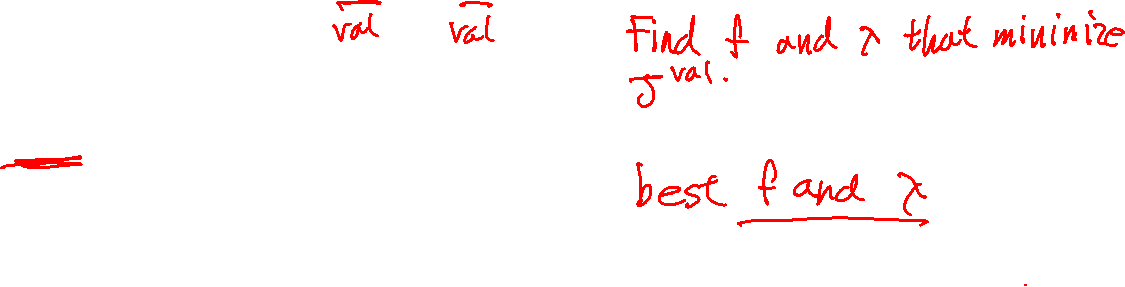 val val
Find f and λ that minimize
J val.
best f and λ